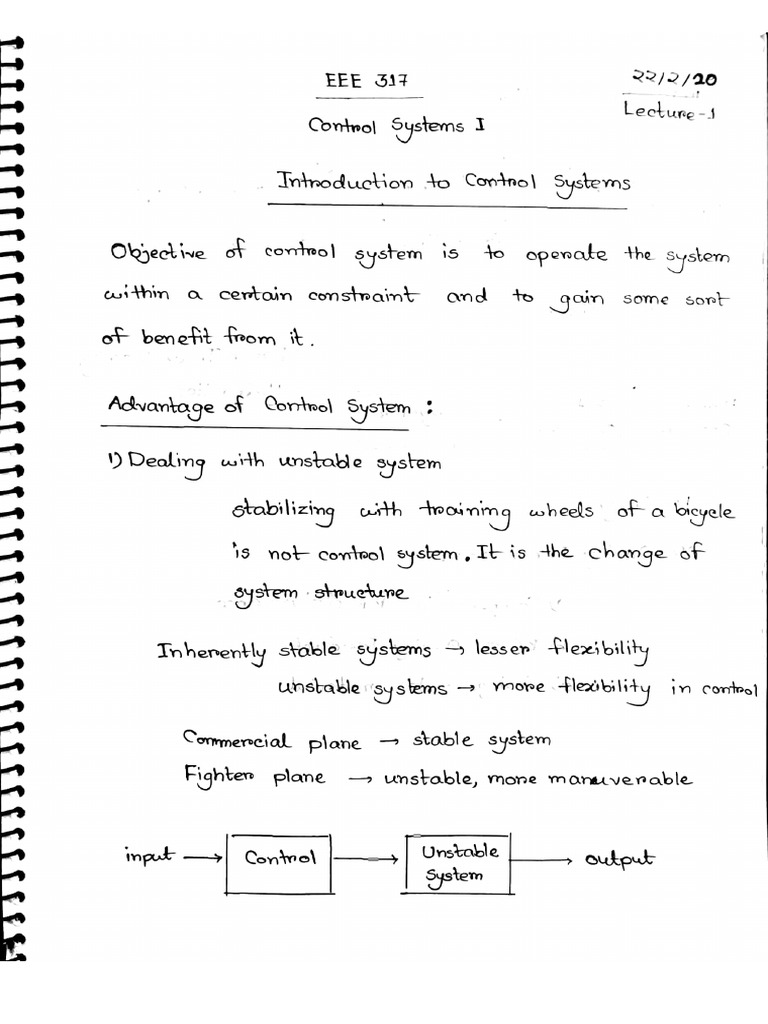 EEE 317
22/2/20
Lecture-1
Control Systems I
Introduction to Control Systems
Objective of control system is to operate the system
within a certain constraint and to gain some sort
of benefit from it.
Advantage of Control System :
1) Dealing with unstable system
stabilizing with training wheels of a bicycle
is not control system. It is the change of
system structure
Inherently stable systems → lesser flexibility
unstable systems → more flexibility in control
Commercial plane → stable system
Fighter plane → unstable, more manuverable
input → Control → Unstable System → output